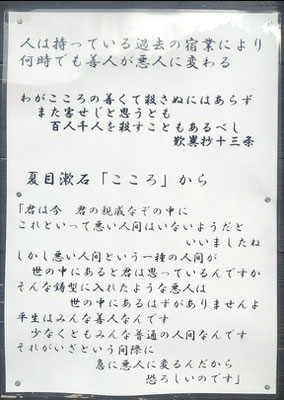 人は持っている過去の宿業により
何時でも善人が悪人に変わる
わがこころの善くて殺さぬにはあらず
また害せじと思うとも
百人千人を殺すこともあるべし
歎異抄十三条
夏目漱石「こころ」から
「君は今　君の親戚なぞの中に
これといって悪い人間はいないようだと
いいましたね
しかし悪い人間という一種の人間が
世の中にあると君は思っているんですか
そんな鋳型に入れたような悪人は
世の中にあるはずがありませんよ
平生はみんな善人なんです
少なくともみんな普通の人間なんです
それがいざという間際に
急に悪人に変るんだから
恐ろしいのです」